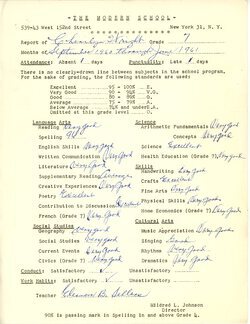 -THE MODERN SCHOOL-
539-43 West 152nd Street New York 31, N. Y.
Report of Grade 7
Months of September 1960 through June 1961
Attendance: Absent days Punctuality: Late days
There is no clearly-drawn line between subjects in the school program.
For the sake of grading, the following standards are used:
Excellent 95 - 100% E.
Very Good 90 - 94% V.G.
Good 80 - 89% G.
Average 75 - 79% A.
Below Average - 74% and under B.A.
Language Arts Science
Reading Very Good Arithmetic Fundamentals Very Good
Spelling Concepts Very Good
English Skills Very Good Science Excellent
Written Communication Very Good Health Education (Grade 7) Very Good
Literature Very Good Skills
Supplementary Reading Average Handwriting Very Good
Creative Experiences Very Good Crafts Excellent
Poetry Excellent Fine Arts
Contribution to Discussion Excellent Physical Skills Very Good
French (Grade 7) Very Good Home Economics (Grade 7) Very Good
Social Studies Cultural Arts
Geography Very Good Music Very Good
Social Studies Very Good Singing Good
Current Events Very Good Rhythm Very Good
Civics (Grade 7) Very Good Dramatics Very Good
Conduct: Satisfactory Unsatisfactory
Work Habits: Satisfactory Unsatisfactory
Teacher
Mildred L. Johnson
Director
90% is passing mark in Spelling in and above Grade